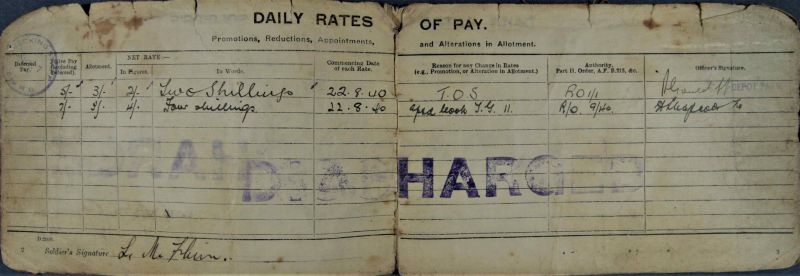 DAILY RATES OF PAY.
Promotions, Reductions, Appointments, and Alterations in Allotment.
Deferred Pay.
Active Pay (excluding Deferred).
Allotment.
NET RATE:—
In Figures.
In Words.
Commencing Date of each Rate.
Reason for any Change in Rates (e.g., Promotion, or Alteration in Allotment.)
Authority, Part II. Order, A.F. B.213, &c.
Officer's Signature.
5/- 3/- 2/- Two Shillings 22.8.40 T.O.S RO 1/1
7/- 3/- 4/- Four shillings 22.8.40 Cook T.G. II. R/O 9/40.
DEPOT
DISCHARGED
Soldier's Signature
2
3